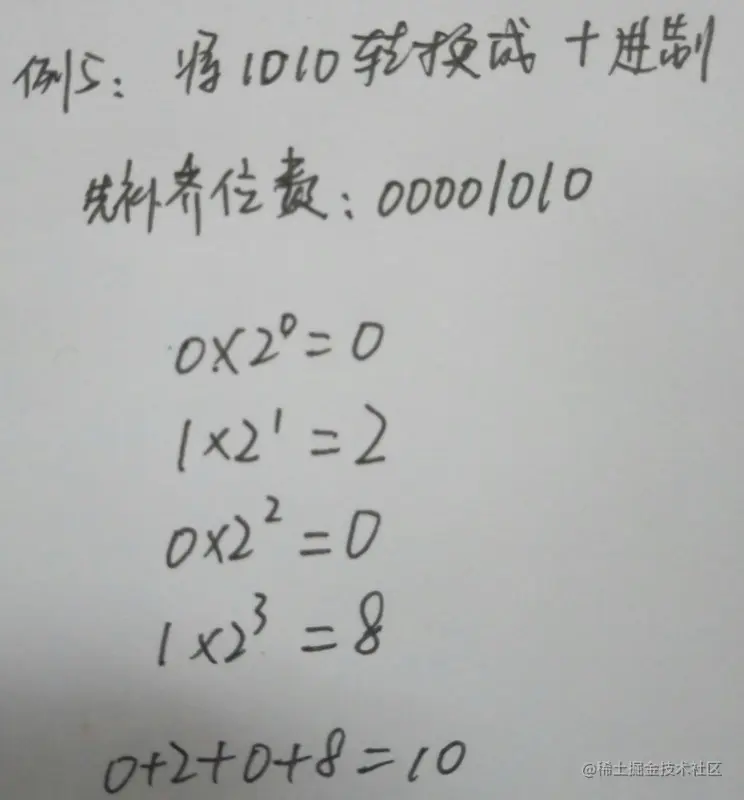 例5：将1010转换成十进制
先补齐位数：00001010
0×2⁰=0
1×2¹=2
0×2²=0
1×2³=8
0+2+0+8=10
@稀土掘金技术社区